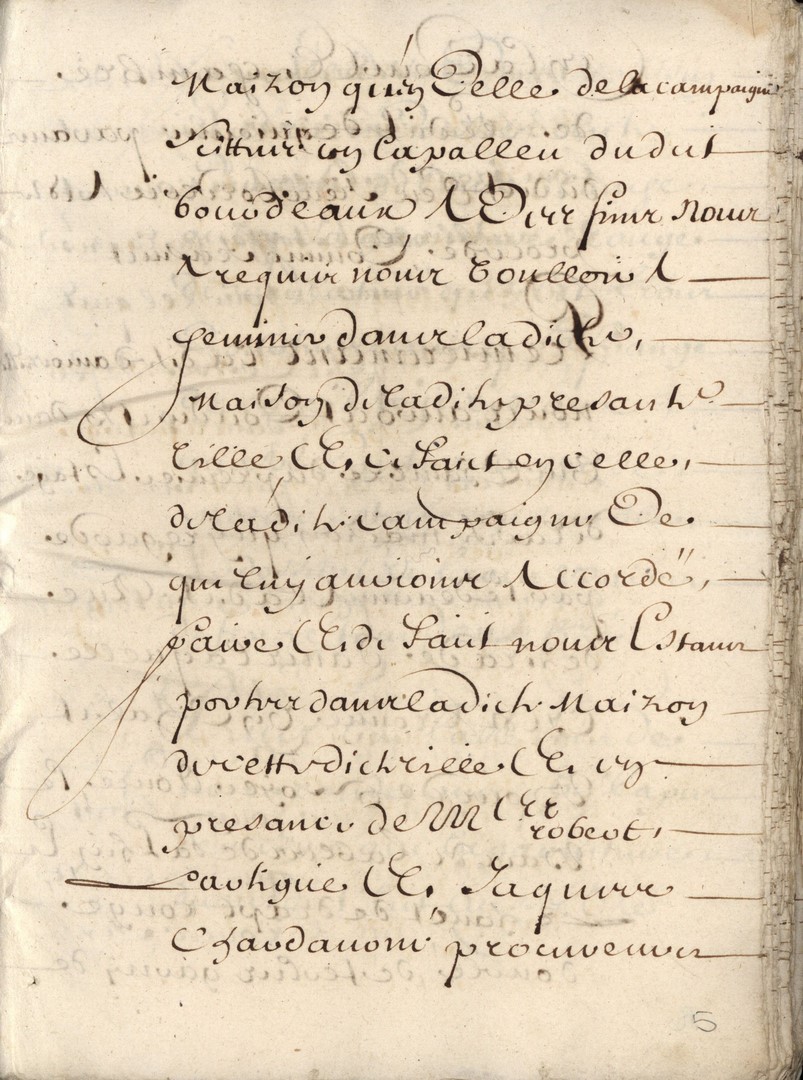 Maizon qu'en Celle de la campaigne
scittuée en la palleu dudit
bourdeaux A Ces fins Nous
A requis nous voulloir A
cheminer dans ladicte
Maison de ladite presante
ville Et ce faict en celle
de ladite campaigne Ce
que luy aurions Accordé
faire Et de faict nous Estans
portés dans ladicte Maizon
de cette dicte ville Et en
presance de Mes robert
Et Jaques
Chardavoine procureurs
5